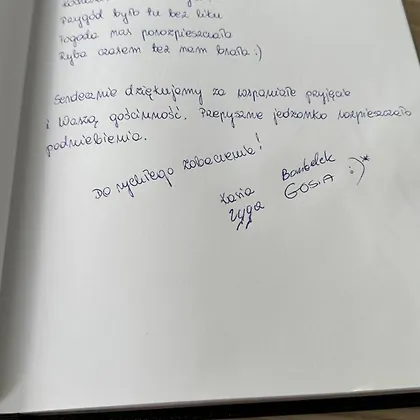 Przygód było tu bez liku
Pogoda nas porozpieszczała
Ryba czasem też nam brała :)
Serdecznie dziękujemy za wspaniałe przyjęcie
i Waszą gościnność. Przepyszne jedzonko rozpieszczało
podniebienia.
Do rychłego zobaczenia!
Kasia Bambelek
Zyga GOSIA :)*